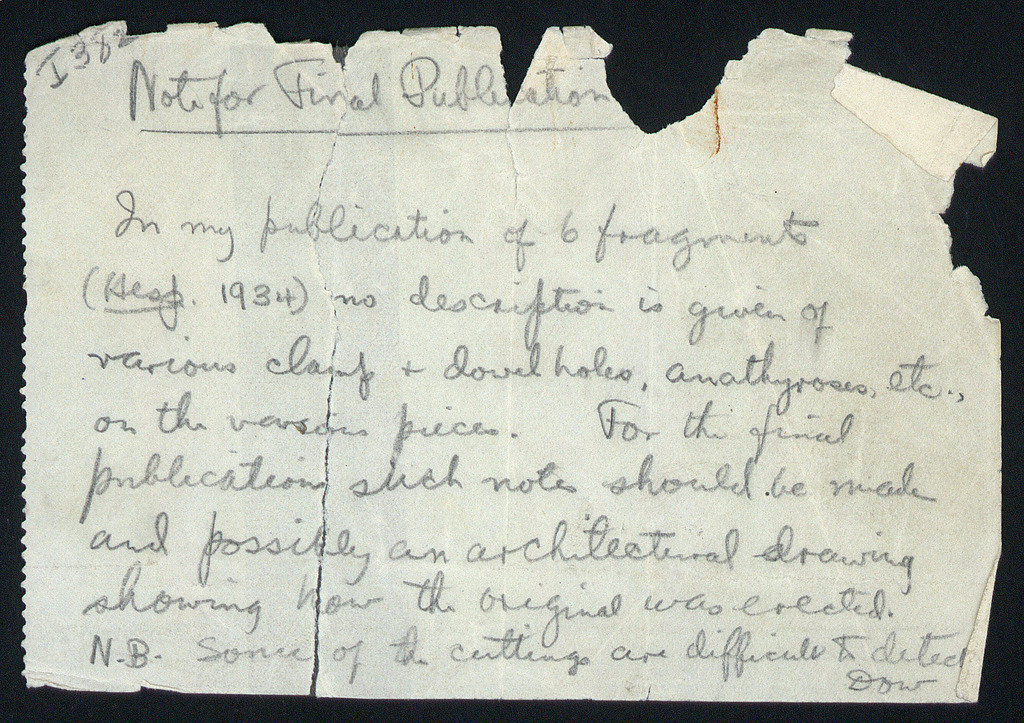 I 382
Note for Final Publication
In my publication of 6 fragments
(Hesp. 1934) no description is given of
various clamp + dowel holes, anathyroses, etc.,
on the various pieces. For the final
publication such notes should be made
and possibly an architectural drawing
showing how the original was erected.
N.B. Some of the cuttings are difficult to detect
Dow